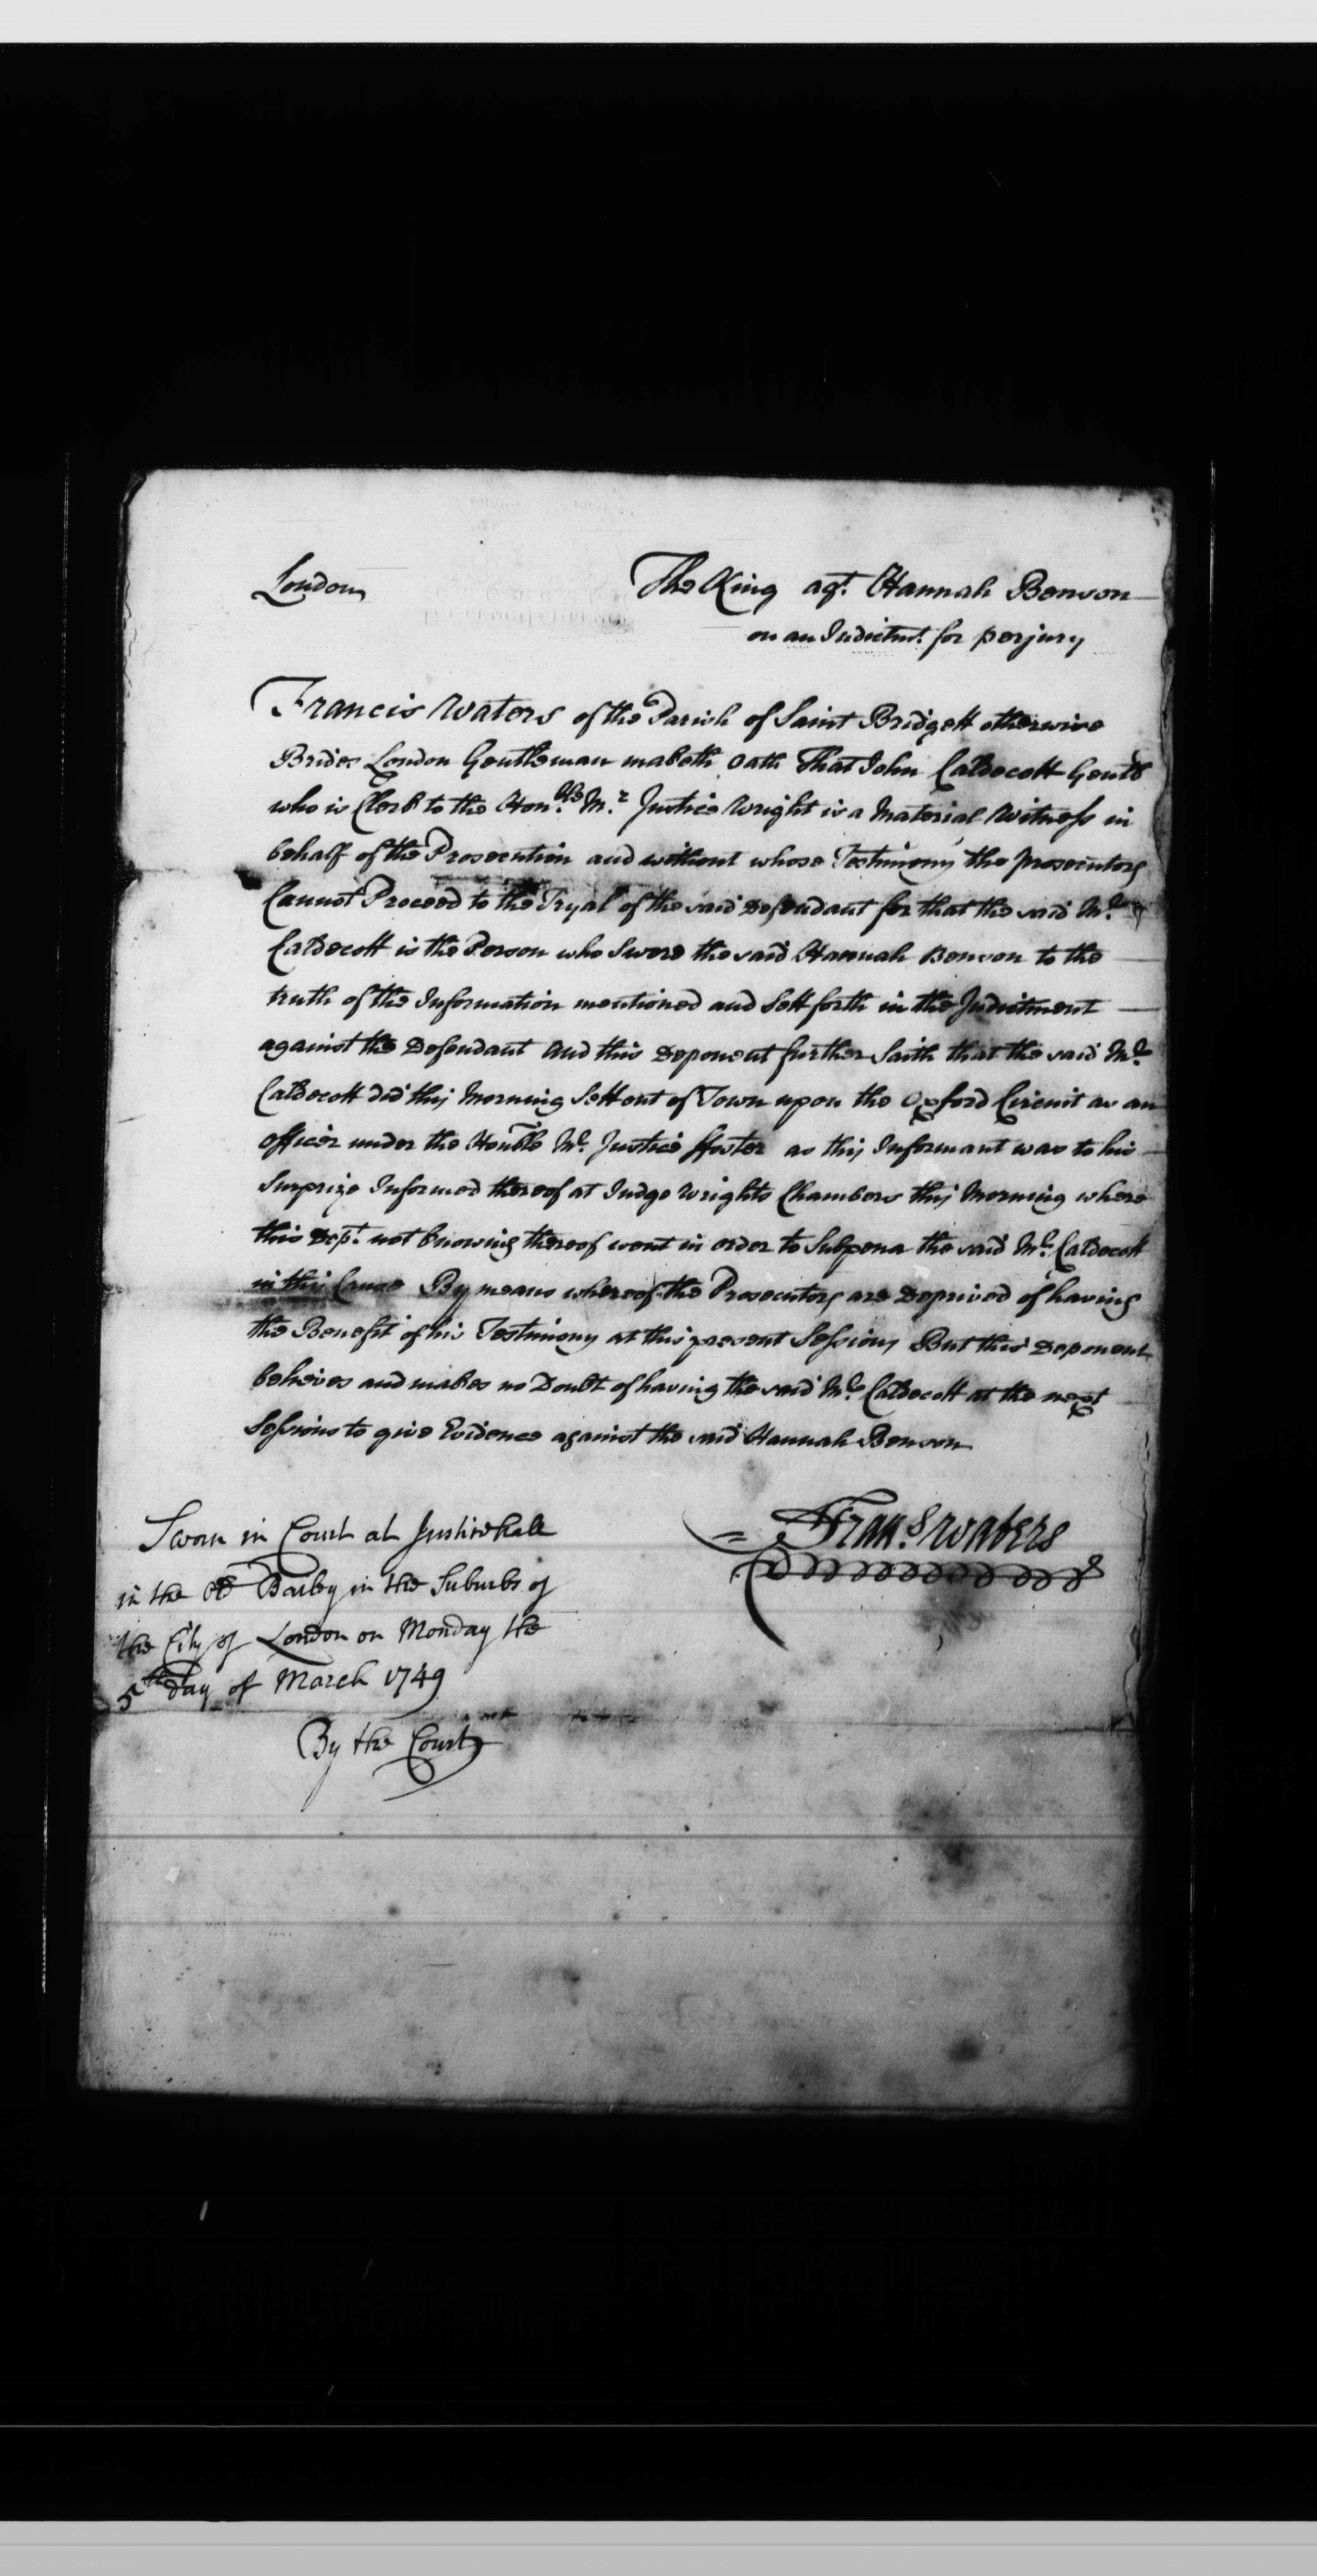 London
The King agt. Hannah Benson
on an Indictmt. for perjury
Francis Waters of the Parish of Saint Bridgett otherwise
Brides London Gentleman maketh Oath That John Caldecott Gentl
who is Clerk to the Honble. Mr. Justice Wright is a Material Witness in
behalf of the Prosecution and without whose Testimony the prosecutors
Cannot Proceed to the Tryal of the said Defendant for that the said Mr.
Caldecott is the Person who Swore the said Hannah Benson to the
truth of the Information mentioned and Sett forth in the Indictment
against the Defendant And this Deponent further Saith that the said Mr.
Caldecott did this Morning Sett out of Town upon the Oxford Circuit as an
officer under the Honble Mr. Justice ffoster as this Informant was to his
Surprize Informed thereof at Judge Wrights Chambers this Morning where
this Dept. not knowing thereof went in order to Subpena the said Mr. Caldecott
in this Cause By means whereof the Prosecutors are Deprived of having
the Benefit of his Testimony at this present Sessions But this Deponent
beleives and makes no Doubt of having the said Mr. Caldecott at the next
Sessions to give Evidence against the said Hannah Benson
Frans. Waters
Sworn in Court at Justice hall
in the Old Bailey in the Suburbs of
the City of London on Monday the
5th day of March 1749
By the Court